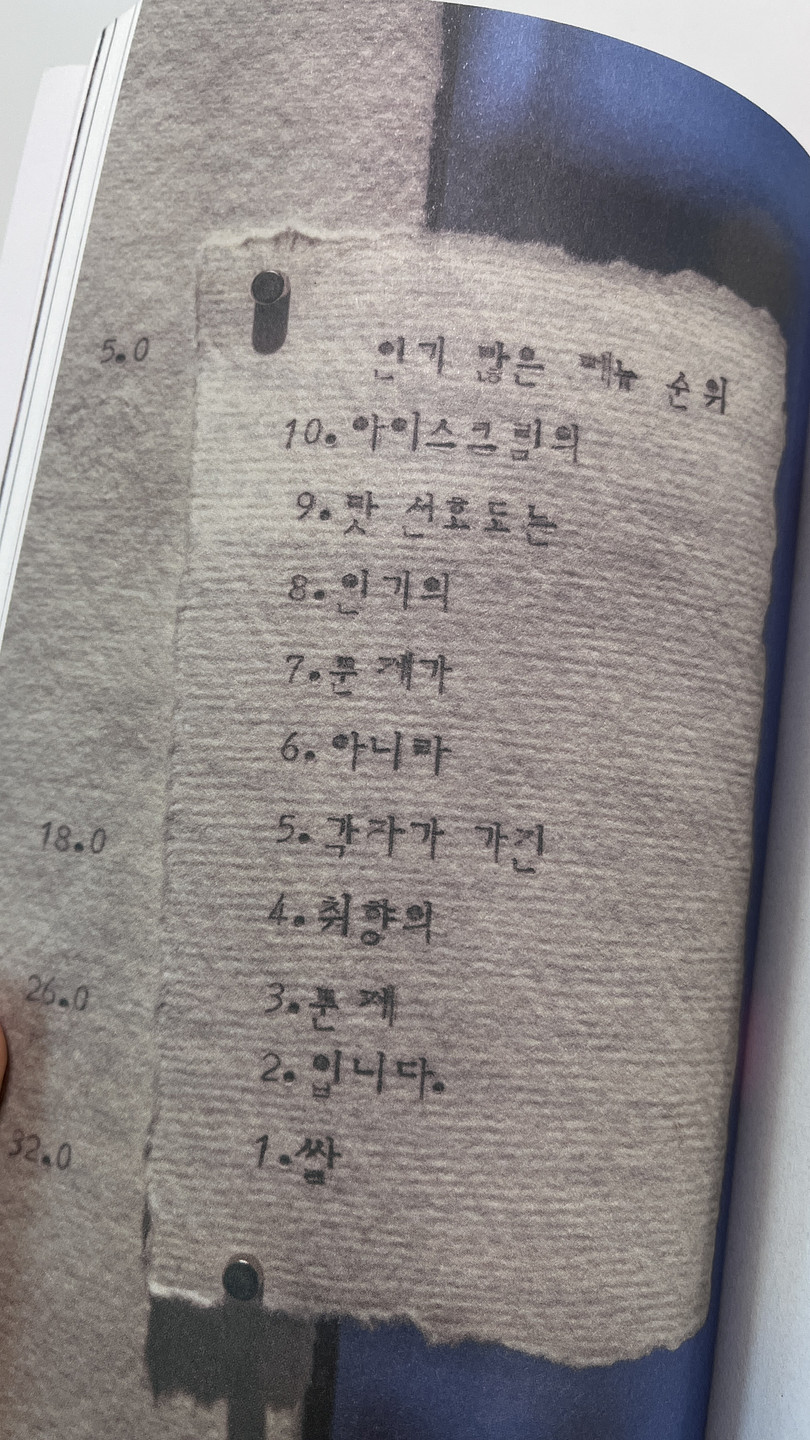 5.0
인기 많은 메뉴 순위
10. 아이스크림의
9. 맛 선호도는
8. 인기의
7. 문제가
6. 아니라
18.0
5. 각자가 가진
4. 취향의
26.0
3. 문제
2. 입니다.
32.0
1. 쌀